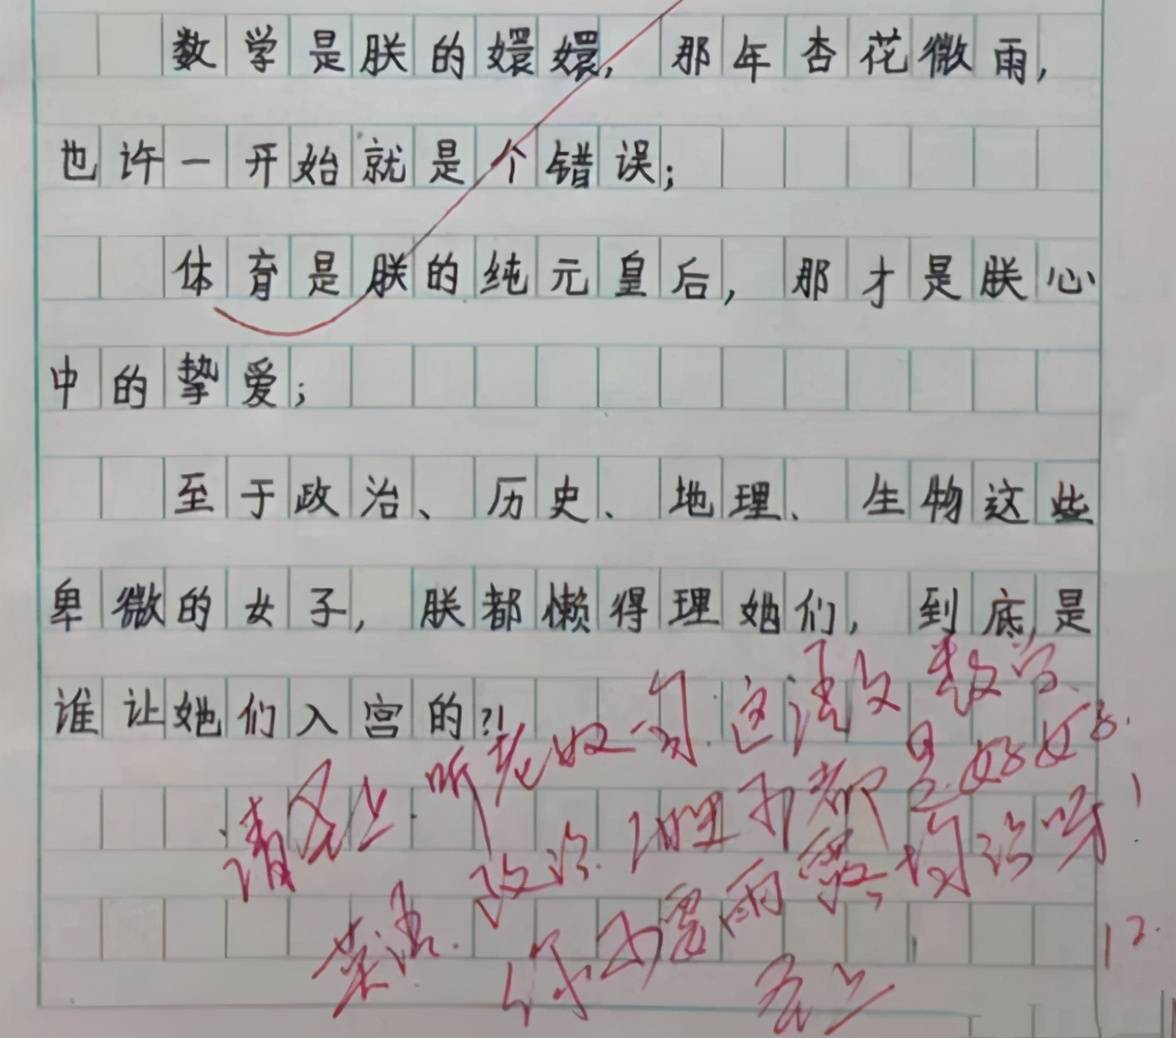 数学是朕的嬛嬛，那年杏花微雨，
也许一开始就是个错误；
体育是朕的纯元皇后，那才是朕心
中的挚爱；
至于政治、历史、地理、生物这些
卑微的女子，朕都懒得理她们，到底是
谁让她们入宫的?!
请皇上听老奴一句.这语文数学
英语.政治.地理可都是好好
你可要雨露均沾呀！
皇上
12.